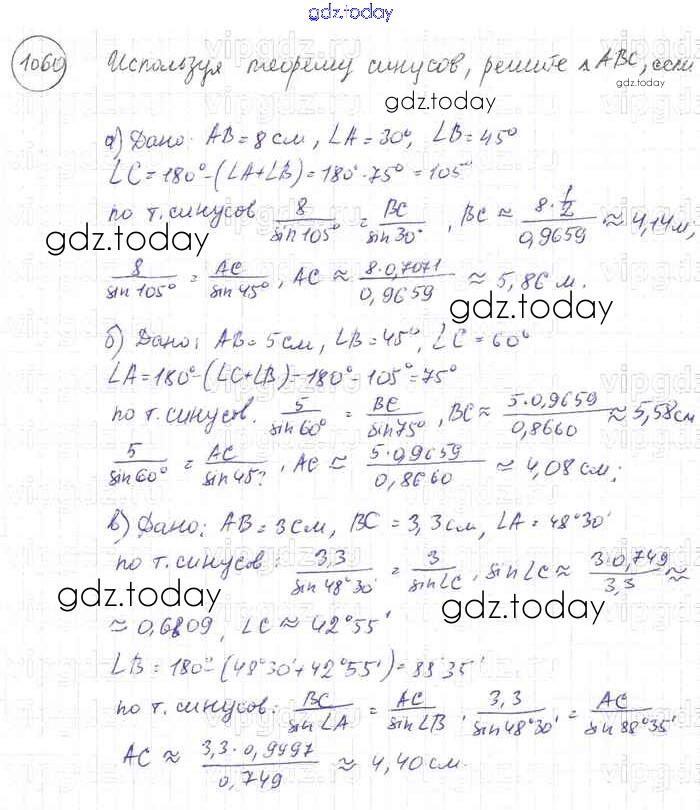 gdz.today
1060 Используя теорему синусов, решите △ABC, если
gdz.today
а) Дано: AB = 8 см, ∠A = 30°, ∠B = 45°
∠C = 180° − (∠A+∠B) = 180° · 75° = 105°
по т. синусов 8/sin 105° = BC/sin 30°, BC ≈ (8 · 1/2)/0,9659 ≈ 4,14 м,
gdz.today
8/sin 105° = AC/sin 45°, AC ≈ (8 · 0,7071)/0,9659 ≈ 5,86 м.
gdz.today
б) Дано: AB = 5 см, ∠B = 45°, ∠C = 60°
∠A = 180° − (∠C+∠B) − 180° − 105° = 75°
по т. синусов. 5/sin 60° = BC/sin 75°, BC ≈ (5 · 0,9659)/0,8660 ≈ 5,58 см
gdz.today
5/sin 60° = AC/sin 45?, AC ≈ (5 · 0,9659)/0,8660 ≈ 4,08 см;
в) Дано: AB = 3 см, BC = 3,3 см, ∠A = 48°30'
по т. синусов: 3,3/sin 48°30' = 3/sin ∠C, sin ∠C ≈ (3 · 0,749)/3,3 ≈
gdz.today
gdz.today
≈ 0,6809, ∠C ≈ 42°55'
∠B = 180° − (48°30' + 42°55') = 88°35'
по т. синусов: BC/sin ∠A = AC/sin ∠B, 3,3/sin 48°30' = AC/sin 88°35'
gdz.today
AC ≈ (3,3 · 0,9997)/0,749 ≈ 4,40 см.